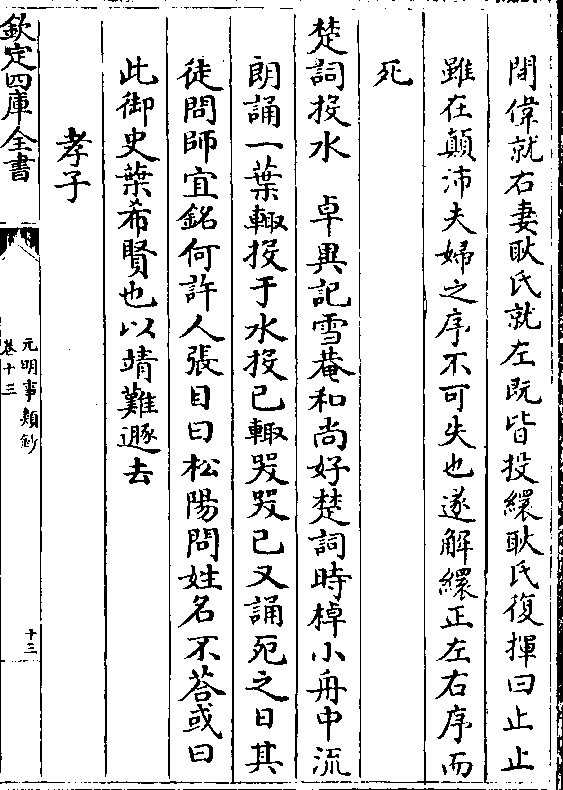 間偉就右妻耿氏就左既皆投繯耿氏復揮曰止止
雖在顛沛夫婦之序不可失也遂解繯正左右序而
死
楚詞投水 卓異記雪菴和尚好楚詞時棹小舟中流
朗誦一葉輙投于水投已輙哭哭已又誦死之日其
徒問師宜銘何許人張目曰松陽問姓名不荅或曰
此御史葉希賢也以靖難遯去
孝子
欽定四庫全書
元明事類鈔
卷十三
十三